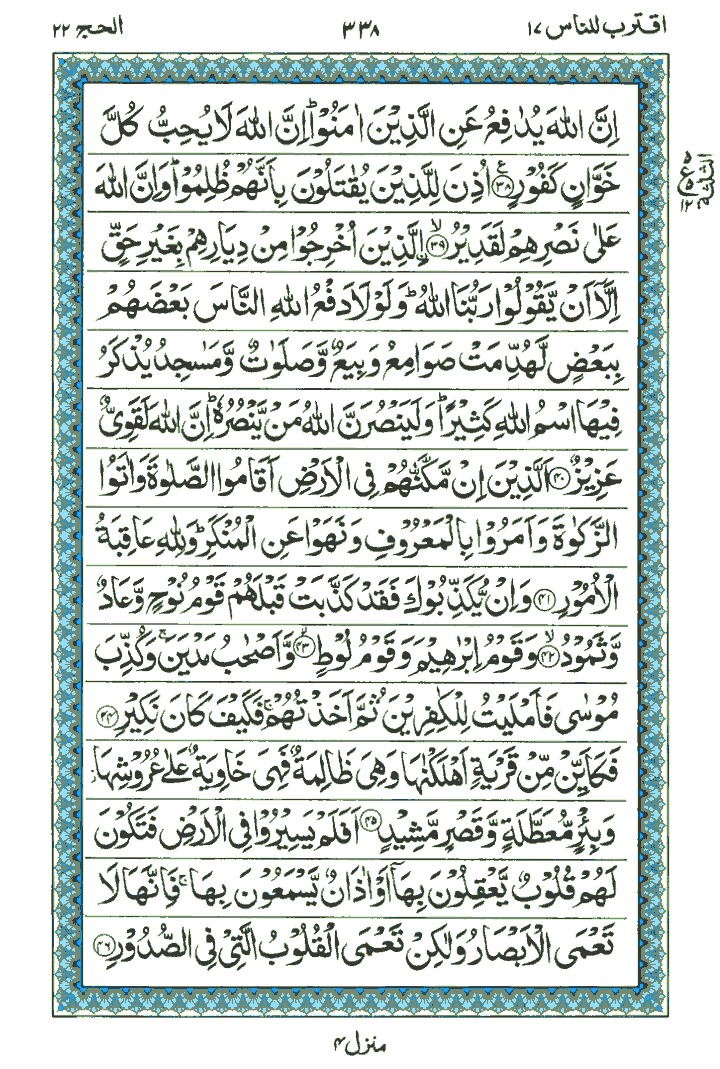 اقترب للناس ۱۷
۳۳۸
الحج ۲۲
اِنَّ اللّٰهَ يُدٰفِعُ عَنِ الَّذِيْنَ اٰمَنُوْا ؕ اِنَّ اللّٰهَ لَا يُحِبُّ كُلَّ
خَوَّانٍ كَفُوْرٍ ﴿۳۸﴾ اُذِنَ لِلَّذِيْنَ يُقٰتَلُوْنَ بِاَنَّهُمْ ظُلِمُوْا ؕ وَاِنَّ اللّٰهَ
عَلٰى نَصْرِهِمْ لَقَدِيْرُ ۙ﴿۳۹﴾ اِۨلَّذِيْنَ اُخْرِجُوْا مِنْ دِيَارِهِمْ بِغَيْرِ حَقٍّ
اِلَّاۤ اَنْ يَّقُوْلُوْا رَبُّنَا اللّٰهُ ؕ وَلَوْلَا دَفْعُ اللّٰهِ النَّاسَ بَعْضَهُمْ
بِبَعْضٍ لَّهُدِّمَتْ صَوَامِعُ وَبِيَعٌ وَّصَلَوٰتٌ وَّمَسٰجِدُ يُذْكَرُ
فِيْهَا اسْمُ اللّٰهِ كَثِيْرًا ؕ وَلَيَنْصُرَنَّ اللّٰهُ مَنْ يَّنْصُرُهٗ ؕ اِنَّ اللّٰهَ لَقَوِىٌّ
عَزِيْزٌ ﴿۴۰﴾ اَلَّذِيْنَ اِنْ مَّكَّنّٰهُمْ فِى الْاَرْضِ اَقَامُوا الصَّلٰوةَ وَاٰتَوُا
الزَّكٰوةَ وَاَمَرُوْا بِالْمَعْرُوْفِ وَنَهَوْا عَنِ الْمُنْكَرِ ؕ وَلِلّٰهِ عَاقِبَةُ
الْاُمُوْرِ ﴿۴۱﴾ وَاِنْ يُّكَذِّبُوْكَ فَقَدْ كَذَّبَتْ قَبْلَهُمْ قَوْمُ نُوْحٍ وَّعَادٌ
وَّثَمُوْدُ ۙ﴿۴۲﴾ وَقَوْمُ اِبْرٰهِيْمَ وَقَوْمُ لُوْطٍ ۙ﴿۴۳﴾ وَّاَصْحٰبُ مَدْيَنَ ۚ وَكُذِّبَ
مُوْسٰى فَاَمْلَيْتُ لِلْكٰفِرِيْنَ ثُمَّ اَخَذْتُهُمْ ۚ فَكَيْفَ كَانَ نَكِيْرِ ﴿۴۴﴾
فَكَاَيِّنْ مِّنْ قَرْيَةٍ اَهْلَكْنٰهَا وَهِىَ ظَالِمَةٌ فَهِىَ خَاوِيَةٌ عَلٰى عُرُوْشِهَا ز
وَبِئْرٍ مُّعَطَّلَةٍ وَّقَصْرٍ مَّشِيْدٍ ﴿۴۵﴾ اَفَلَمْ يَسِيْرُوْا فِى الْاَرْضِ فَتَكُوْنَ
لَهُمْ قُلُوْبٌ يَّعْقِلُوْنَ بِهَاۤ اَوْ اٰذَانٌ يَّسْمَعُوْنَ بِهَا ۚ فَاِنَّهَا لَا
تَعْمَى الْاَبْصَارُ وَلٰكِنْ تَعْمَى الْقُلُوْبُ الَّتِىْ فِى الصُّدُوْرِ ﴿۴۶﴾
منزل ۴